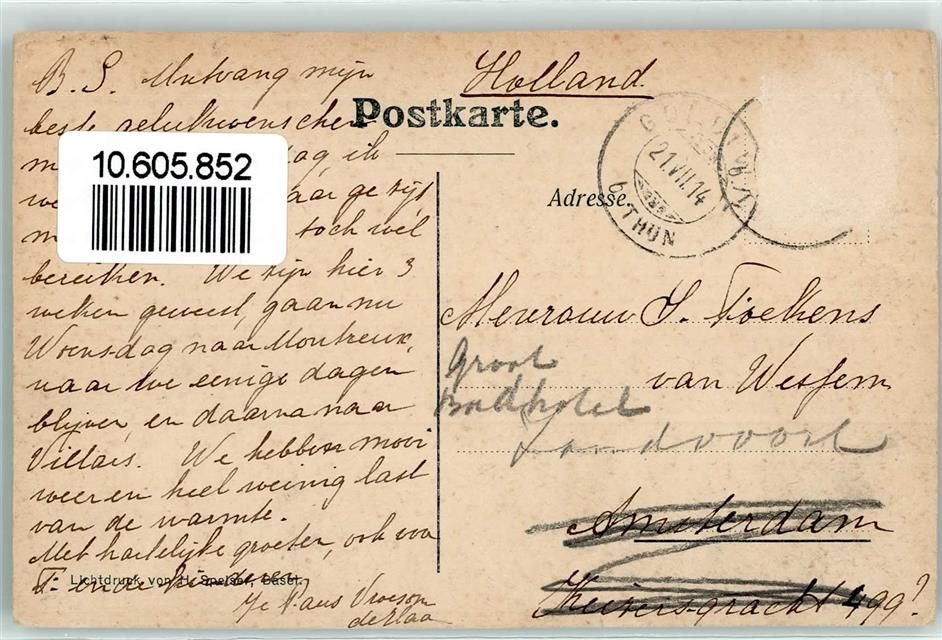 B. S. Ontvang mijn
beste gelukwenschen
ag ik
aar ge zijt
toch wel
bereiken. We zijn hier 3
weken geweest, gaan nu
Woensdag naar Montreux,
waar we eenige dagen
blijven en daarna naar
Villars. We hebben mooi
weer en heel weinig last
van de warmte.
Met hartelijke groeten, ook voor
en de kinderen
10.605.852
Lichtdruck von H. Speiser, Basel.
Holland.
Postkarte.
Adresse.
GOLDIWYL
21.VII.14
b/THUN
Mevrouw S. Fockens
van Wessem
Groot
Badhotel
Zandvoort
Amsterdam
Keizersgracht 499?